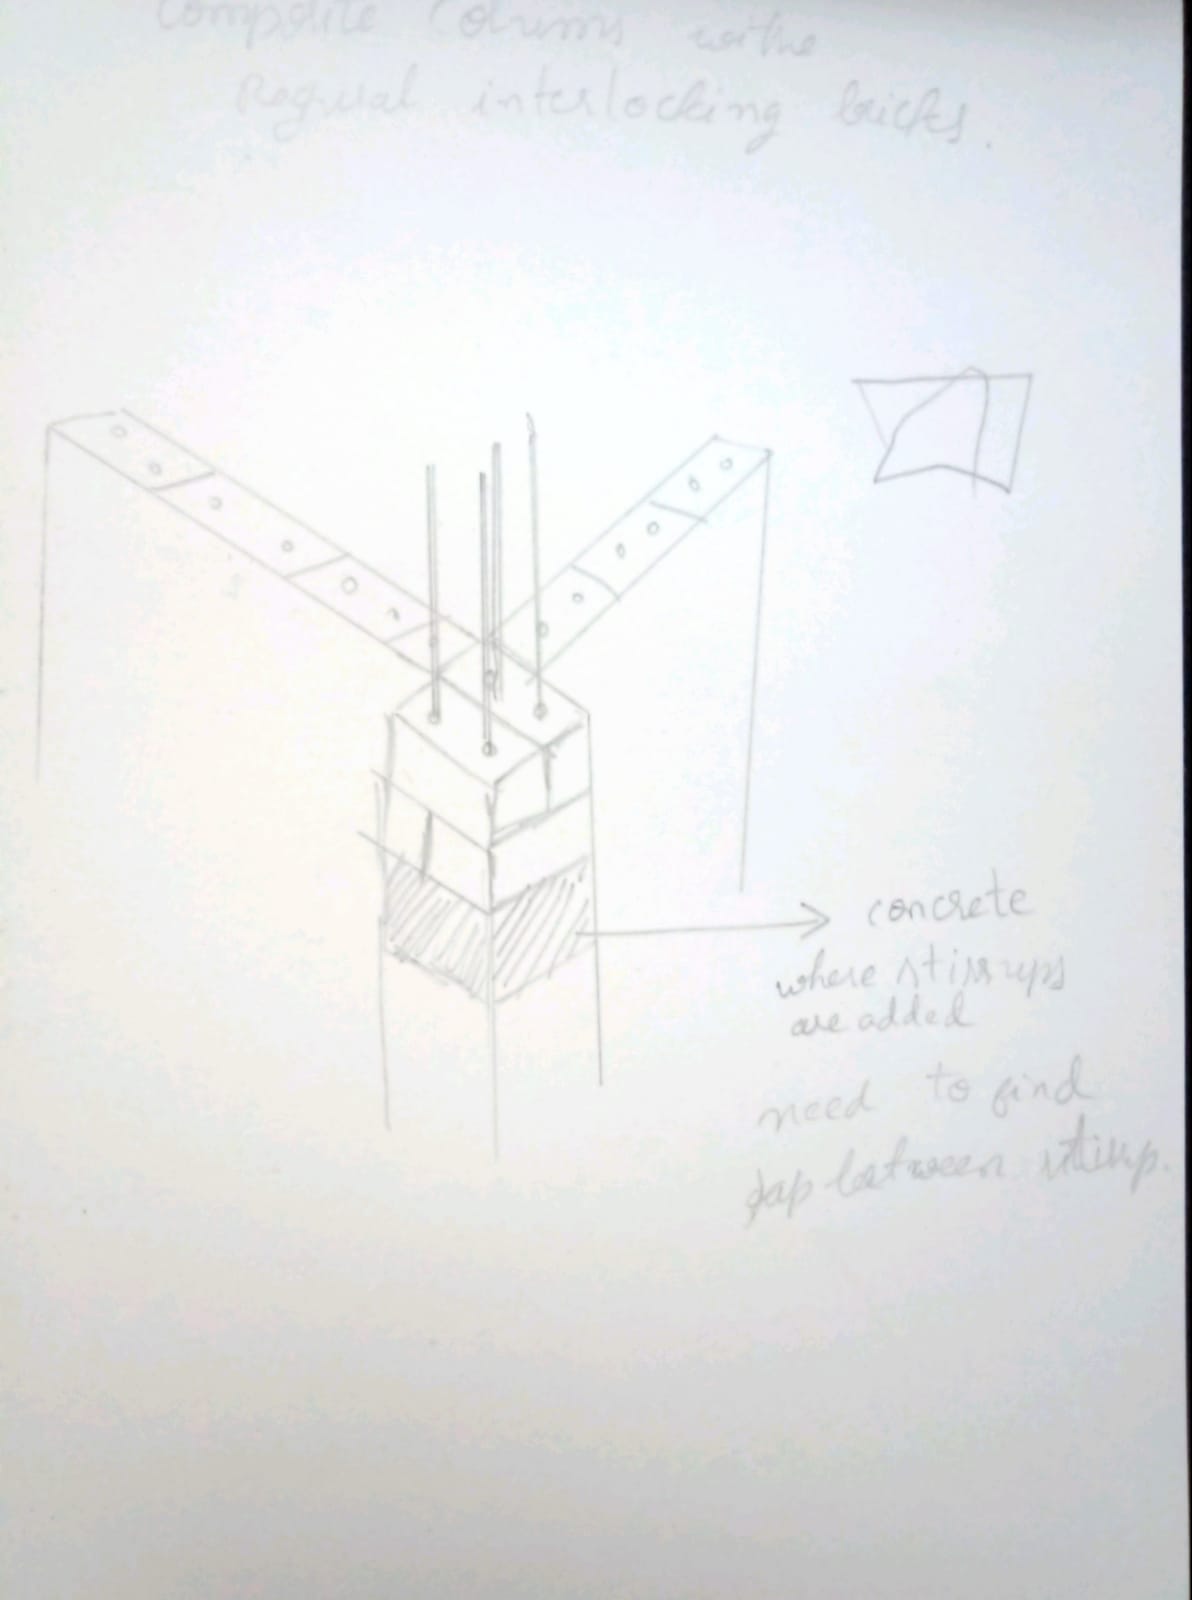 Composite Columns withe
Regual interlocking bricks.
concrete
where stirrups
are added
need to find
gap between stirrup.